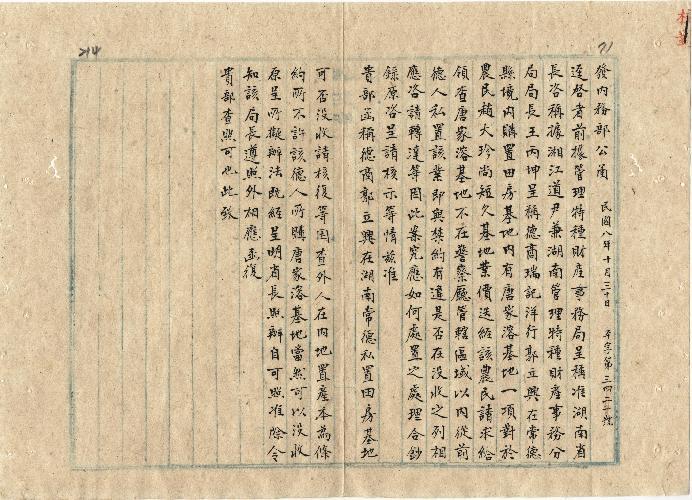 71
214
發內務部公函　民國八年十月三十日　字第三四二號
逕啓者前據管理特種財產事務局呈稱准湖南省
長咨稱據湘江道尹兼湖南管理特種財產事務分
局局長王丙坤呈稱德商瑞記洋行郭立興在常德
縣境內購置田房基地內有唐家溶基地一項對於
農民趙大珍尚短欠基地業價迭經該農民請求給
領查唐家溶基地不在警察廳管轄區域以內從前
德人私置該業即與契約有違是否在沒收之列相
應咨請轉達等因此案究應如何處置之處理合鈔
錄原咨呈請核示等情茲准
貴部函稱德商郭立興在湖南常德私置田房基地
可否沒收請核復等因查外人在內地置產本為條
約所不許該德人所購唐家溶基地當然可以沒收
原呈所擬辦法既經呈明省長照辦自可照准除令
知該局長遵照外相應函復
貴部查照可也此致